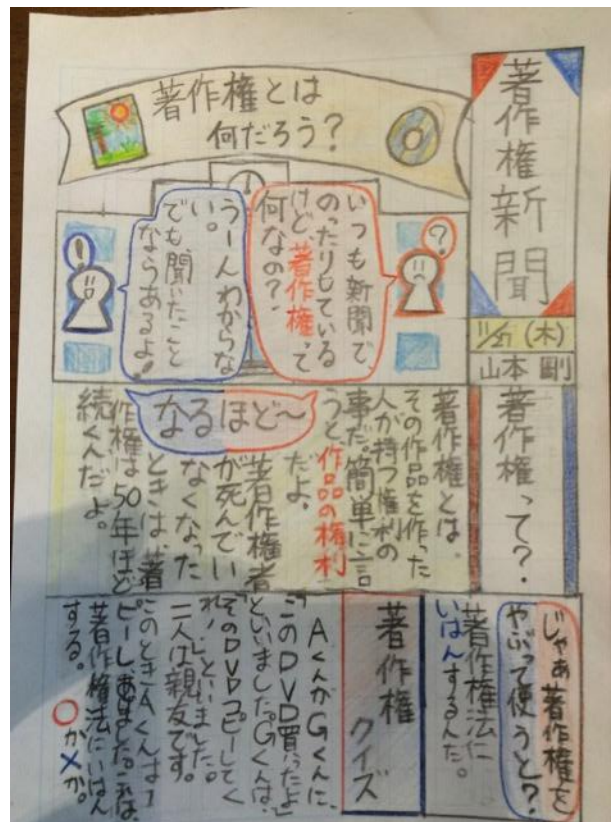 著作権新聞
11/27(木)
山本 剛
著作権とは
何だろう？
？
いつも新聞で、
のったりしている
けど、著作権って
何なの？
！
うーんわからな
い。
でも、聞いたこと
ならあるよ！
著作権って？
著作権とは、
その作品を作った
人が持つ権利の
事だ。簡単に言
うと作品の権利
だよ。
なるほど～
著作権者
が死んでい
なくなった
ときは著
作権は50年ほど
続くんだよ。
じゃあ著作権を
やぶって使うと？
著作権法に
いはんするんだ。
著作権
クイズ
AくんがGくんに、
「このDVD買ったよ」
といいました。Gくんは、
「そのDVDコピーしてく
れ！」といいました。
二人は親友です。
このときAくんは
コピーしあました。これは
著作権法にいはん
する。○か×か。